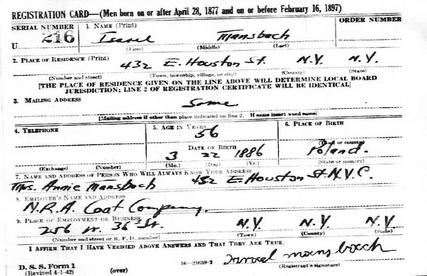 REGISTRATION CARD—(Men born on or after April 28, 1877 and on or before February 16, 1897)
SERIAL NUMBER 1. NAME (Print) ORDER NUMBER
U 216 Mansbach
(First) (Middle) (Last)
2. PLACE OF RESIDENCE (Print)
432 E. Houston St. N.Y. N.Y.
(Number and street) (Town, township, village, or city) (County) (State)
[THE PLACE OF RESIDENCE GIVEN ON THE LINE ABOVE WILL DETERMINE LOCAL BOARD
JURISDICTION; LINE 2 OF REGISTRATION CERTIFICATE WILL BE IDENTICAL]
3. MAILING ADDRESS
Same
[Mailing address if other than place indicated on line 2. If same insert word same]
4. TELEPHONE 5. AGE IN YEARS 6. PLACE OF BIRTH
56
DATE OF BIRTH
3 22 1886 Poland
(Exchange) (Number) (Mo.) (Day) (Yr.) (State or country)
7. NAME AND ADDRESS OF PERSON WHO WILL ALWAYS KNOW YOUR ADDRESS
Mrs. Annie Mansbach 432 E Houston St N.Y.C.
8. EMPLOYER'S NAME AND ADDRESS
N.R.A. Coat Company
9. PLACE OF EMPLOYMENT OR BUSINESS
256 W. 36 St. N.Y. N.Y.
(Number and street or R. F. D. number) (Town) (County) (State)
I AFFIRM THAT I HAVE VERIFIED ABOVE ANSWERS AND THAT THEY ARE TRUE.
D. S. S. Form 1
(Revised 4-1-42) (over) (Registrant's signature)